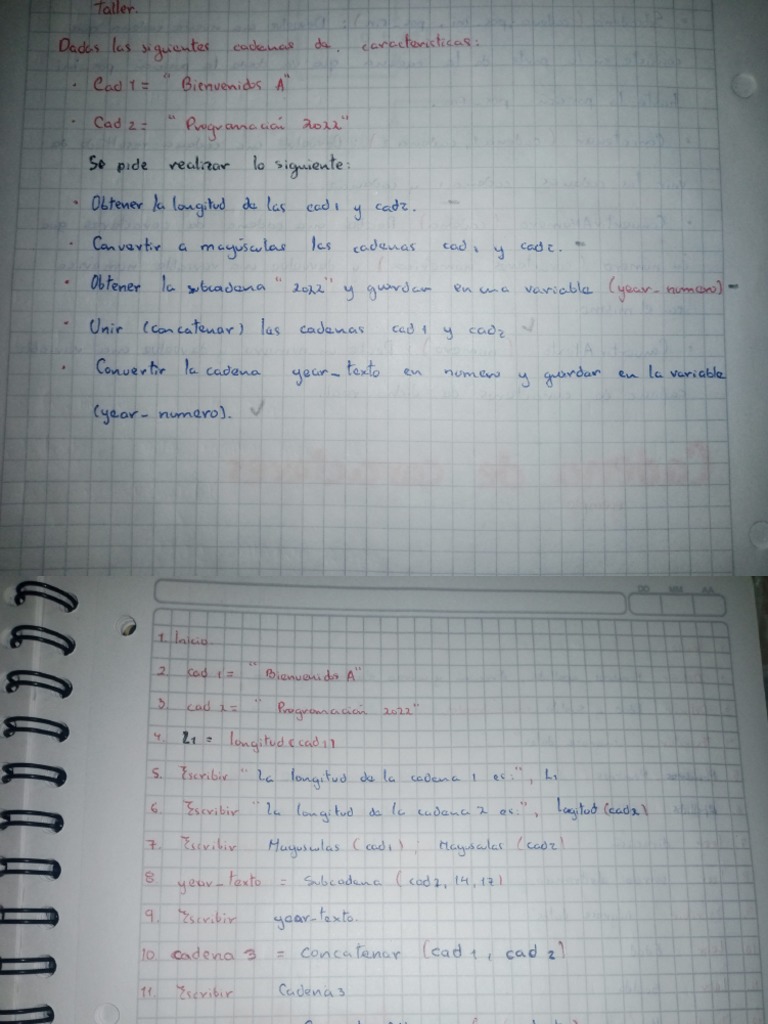 Taller.
Dadas las siguientes cadenas de. caracteristicas:
· Cad 1 = "Bienvenidos A"
· Cad 2 = "Programación 2022"
Se pide realizar lo siguiente:
· Obtener la longitud de las cad1 y cad2.
· Convertir a mayúsculas las cadenas cad1 y cad2.
· Obtener la subcadena "2022" y guardar en una variable (year_numero)
· Unir (concatenar) las cadenas cad1 y cad2 ✓
· Convertir la cadena year_texto en numero y guardar en la variable
(year_numero). ✓
DD MM AA
1. Inicio
2. cad 1 = "Bienvenido A"
3. cad 2 = "Programación 2022"
4. L1 = longitud (cad1)
5. Escribir "La longitud de la cadena 1 es:", L1
6. Escribir "La longitud de la cadena 2 es:", Logitud (cad2)
7. Escribir Mayusculas (cad1); Mayusculas (cad2)
8 year_texto = Subcadena (cad2, 14, 17)
9. Escribir year-texto.
10. cadena 3 = Concatenar (cad 1, cad 2)
11. Escribir Cadena3